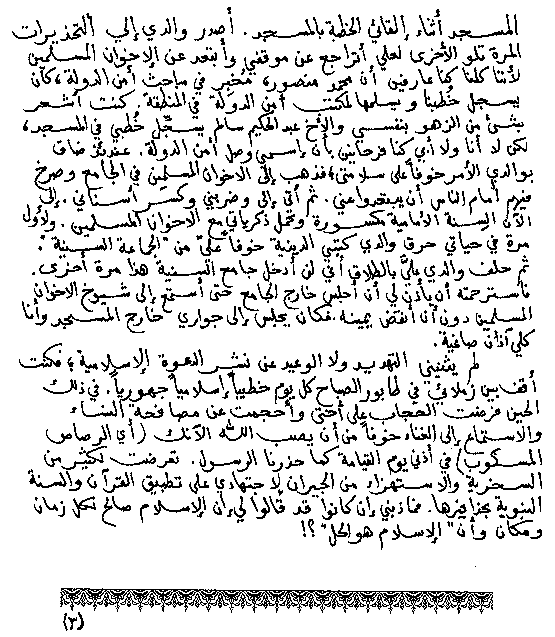 المسجد أثناء إلقائي الخطبة بالمسجد. أصدر والدي إلي التحذيرات
المرة تلو الأخرى لعلي أتراجع عن موقفي وأبتعد عن الإخوان المسلمين
لأننا كلنا كنا عارفين أن محمد منصور، مخبر في مباحث أمن الدولة، كان
يسجل خطبنا ويسلمها لمكتب أمن الدولة في المنطقة. كنت أشعر
بشئ من الزهو بنفسي والأخ عبد الحكيم سالم يسجل خطبي في المسجد،
لكن لا أنا ولا أبي كنا فرحانين بأن إسمي وصل أمن الدولة. عندئذ ضاق
بوالدي الأمر خوفاً على سلامتي؛ فذهب إلى الاخوان المسلمين في الجامع وصرخ
فيهم أمام الناس أن يبتعدوا عني. ثم أتى إلي وضربني وكسر أسناني. إلى
الآن السِنة الأمامية مكسورة وتحمل ذكرياتي مع الاخوان المسلمين. ولأول
مرة في حياتي حرق والدي كتبي الدينية خوفاً عليّ من "الجماعة السنية".
ثم حلف والدي عليّ بالطلاق أني لن أدخل جامع السنية هذا مرة أخرى.
فاسترحمته أن يأذن لي أن أجلس خارج الجامع حتى أستمع إلى شيوخ الاخوان
المسلمين دون أن أنقض يمينه. فكان يجلس إلى جواري خارج المسجد وأنا
كلي آذان صاغية.
لم يثنيني التهديد ولا الوعيد عن نشر الدعوة الإسلامية؛ فكنت
أقف بين زملائي في طابور الصباح كل يوم خطيباً إسلامياً جهورياً. في ذلك
الحين فرضت الحجاب على أختي وأحجمت عن مصافحة النساء
والاستماع إلى الغناء خوفاً من أن يصب الله الآنك (أي الرصاص
المسكوب) في أذني يوم القيامة كما حذرنا الرسول. تعرضت لكثير من
السخرية والاستهزاء من الجيران لاجتهادي على تطبيق القرآن والسنة
النبوية بحذافيرها. فما ذنبي إن كانوا قد قالوا لي إن الإسلام صالح لكل زمان
ومكان وأن "الإسلام هو الحل"؟!
(٢)